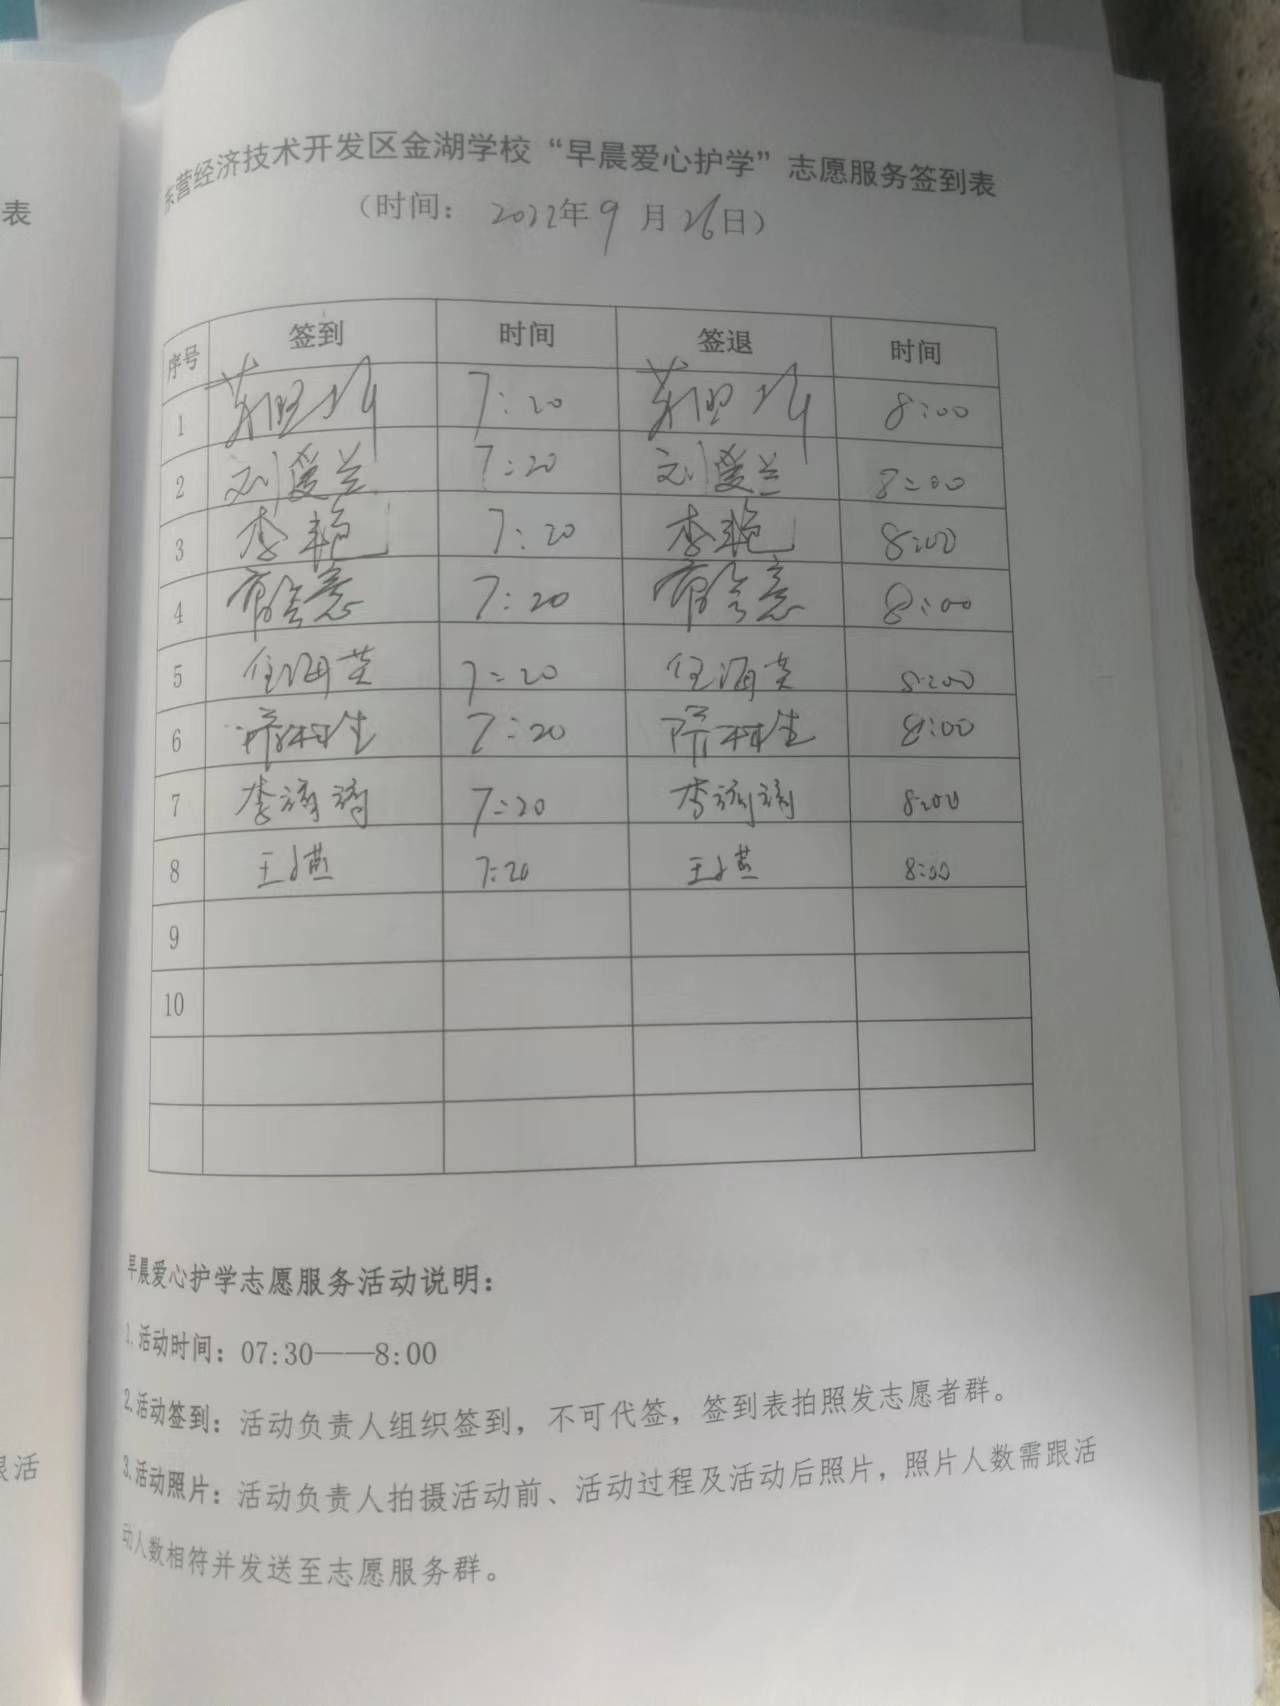 表
东营经济技术开发区金湖学校“早晨爱心护学”志愿服务签到表
（时间： 2022年 9 月 26日）
序号 签到 时间 签退 时间
1 7:20 8:00
2 刘爱兰 7:20 刘爱兰 8:00
3 李艳 7:20 李艳 8:00
4 7:20 8:00
5 任海英 7:20 任海英 8:00
6 7:20 8:00
7 李 7:20 李 8:00
8 王小燕 7:20 王小燕 8:00
9
10
早晨爱心护学志愿服务活动说明：
1.活动时间：07:30——8:00
2.活动签到：活动负责人组织签到，不可代签，签到表拍照发志愿者群。
3.活动照片：活动负责人拍摄活动前、活动过程及活动后照片，照片人数需跟活
动人数相符并发送至志愿服务群。
跟活